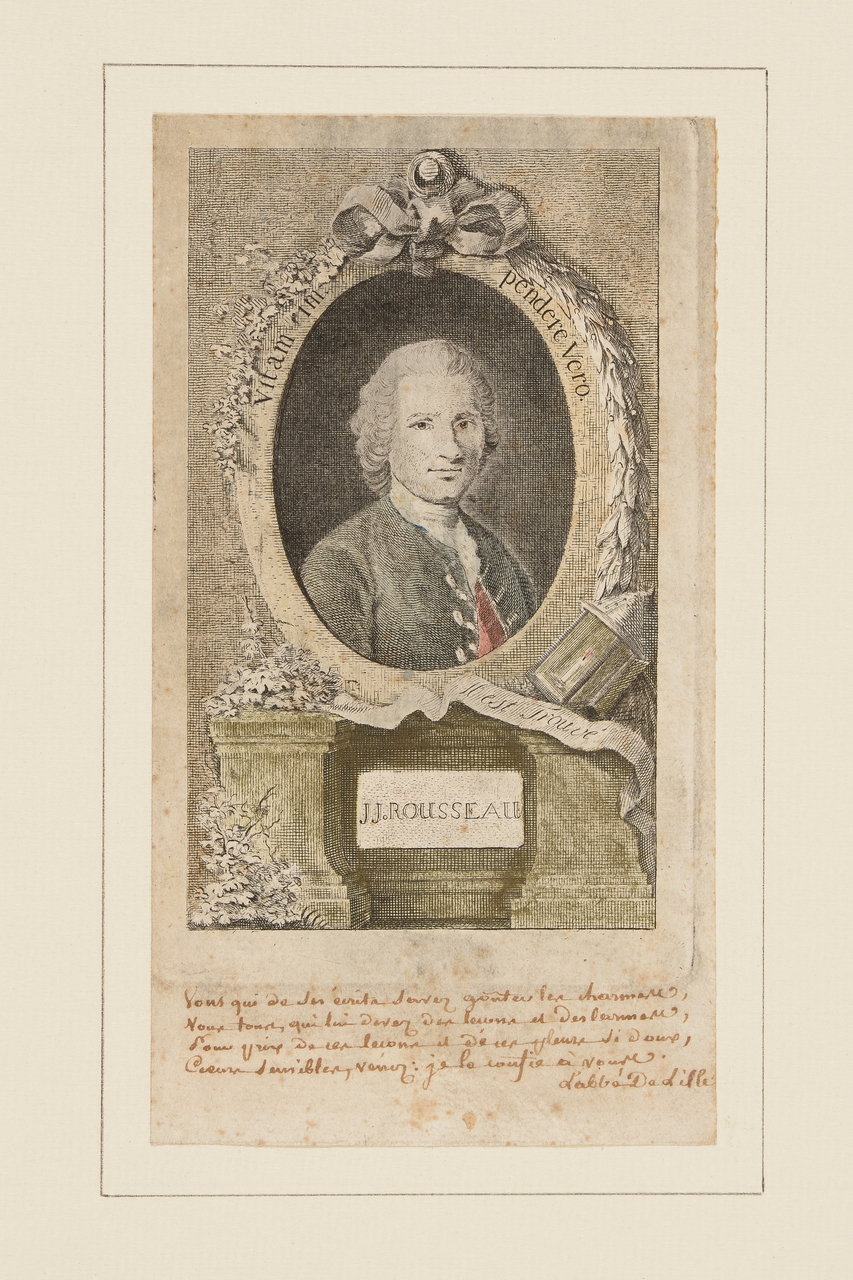 Vitam im-
pendere Vero.
Il est trouvé
J.J.ROUSSEAU
Vous qui de ses écrits savez goûter les charmes,
Vous tous, qui lui devez des leçons et des larmes,
Pour prix de ces leçons et de ces pleurs si doux,
Cœurs sensibles, venez: je le confie à vous.
L'abbé De Lille